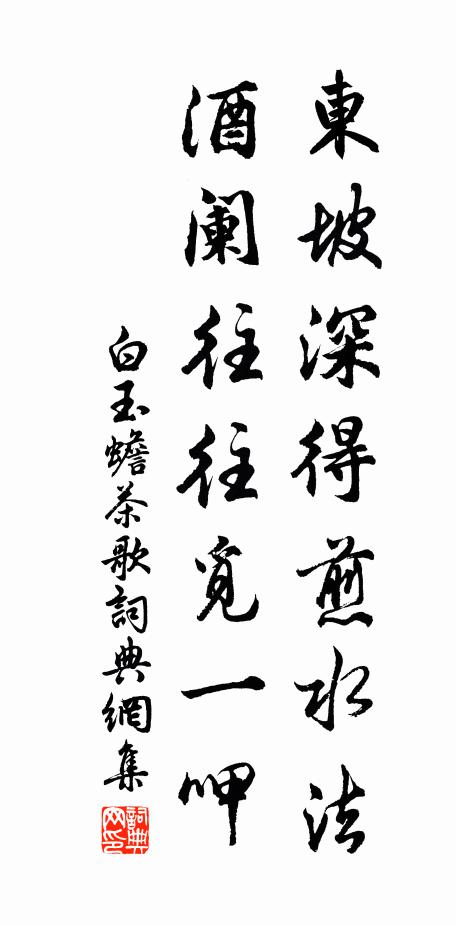 東坡深得煎水法
酒阑往往觅一呷
白玉蟾茶歌詞典網集
詞典网印